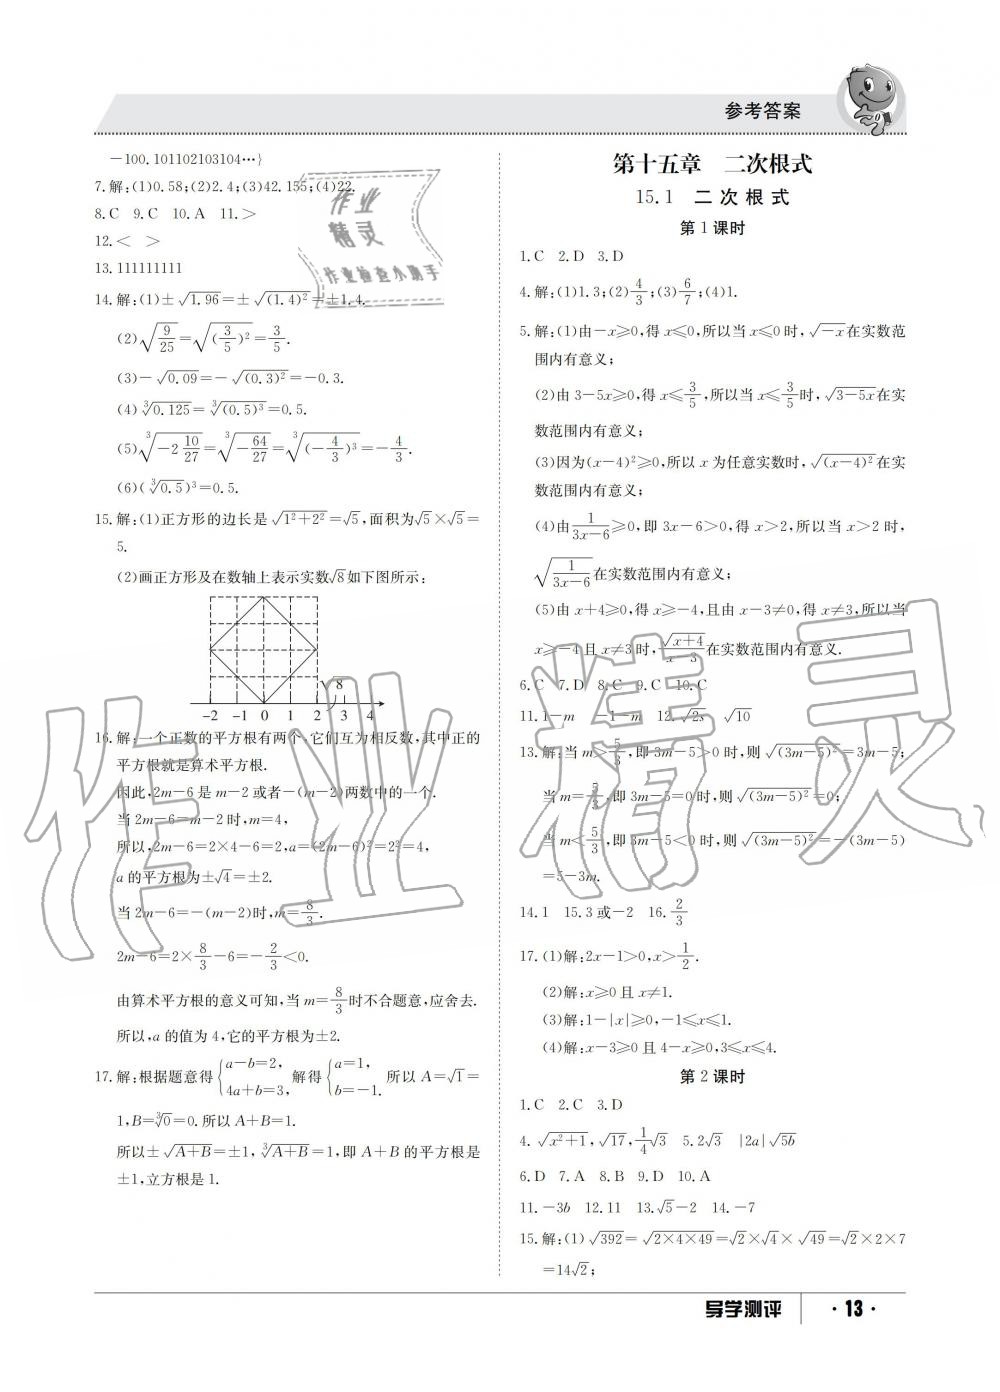 参考答案
－100.101102103104…}
7.解:(1)0.58;(2)2.4;(3)42.155;(4)22.
8.C 9.C 10.A 11.＞
12.＜ ＞
13.111111111
14.解:(1)±√1.96＝±√(1.4)²＝±1.4.
(2)√(9/25)＝√((3/5)²)＝3/5.
(3)－√0.09＝－√(0.3)²＝－0.3.
(4)∛0.125＝∛(0.5)³＝0.5.
(5)∛(－2 10/27)＝∛(－64/27)＝∛((－4/3)³)＝－4/3.
(6)(∛0.5)³＝0.5.
15.解:(1)正方形的边长是√(1²＋2²)＝√5,面积为√5×√5＝
5.
(2)画正方形及在数轴上表示实数√8如下图所示:
√8
－2 －1 0 1 2 3 4
16.解:一个正数的平方根有两个,它们互为相反数,其中正的
平方根就是算术平方根.
因此,2m－6是m－2或者－(m－2)两数中的一个.
当2m－6＝m－2时,m＝4,
所以,2m－6＝2×4－6＝2,a＝(2m－6)²＝2²＝4,
a的平方根为±√4＝±2.
当2m－6＝－(m－2)时,m＝8/3.
2m－6＝2×8/3－6＝－2/3＜0.
由算术平方根的意义可知,当m＝8/3时不合题意,应舍去.
所以,a的值为4,它的平方根为±2.
17.解:根据题意得{a－b＝2, 4a＋b＝3, 解得{a＝1, b＝－1. 所以A＝√1＝
1,B＝∛0＝0.所以A＋B＝1.
所以±√(A＋B)＝±1,∛(A＋B)＝1,即A＋B的平方根是
±1,立方根是1.
第十五章 二次根式
15.1 二次根式
第1课时
1.C 2.D 3.D
4.解:(1)1.3;(2)4/3;(3)6/7;(4)1.
5.解:(1)由－x≥0,得x≤0,所以当x≤0时,√(－x)在实数范
围内有意义;
(2)由3－5x≥0,得x≤3/5,所以当x≤3/5时,√(3－5x)在实
数范围内有意义;
(3)因为(x－4)²≥0,所以x为任意实数时,√(x－4)²在实
数范围内有意义;
(4)由1/(3x－6)≥0,即3x－6＞0,得x＞2,所以当x＞2时,
√(1/(3x－6))在实数范围内有意义;
(5)由x＋4≥0,得x≥－4,且由x－3≠0,得x≠3,所以当
x≥－4且x≠3时,√(x＋4)/(x－3)在实数范围内有意义.
6.C 7.D 8.C 9.C 10.C
11.1－m －1－m 12.√2s √10
13.解:当m＞5/3,即3m－5＞0时,则√(3m－5)²＝3m－5;
当m＝5/3,即3m－5＝0时,则√(3m－5)²＝0;
当m＜5/3,即3m－5＜0时,则√(3m－5)²＝－(3m－5)
＝5－3m.
14.1 15.3或－2 16.2/3
17.(1)解:2x－1＞0,x＞1/2.
(2)解:x≥0且x≠1.
(3)解:1－|x|≥0,－1≤x≤1.
(4)解:x－3≥0且4－x≥0,3≤x≤4.
第2课时
1.C 2.C 3.D
4.√(x²＋1),√17,1/4√3 5.2√3 |2a|√5b
6.D 7.A 8.B 9.D 10.A
11.－3b 12.11 13.√5－2 14.－7
15.解:(1)√392＝√(2×4×49)＝√2×√4×√49＝√2×2×7
＝14√2;
导学测评 ·13·
作业
精灵
作业检查小助手
作业精灵